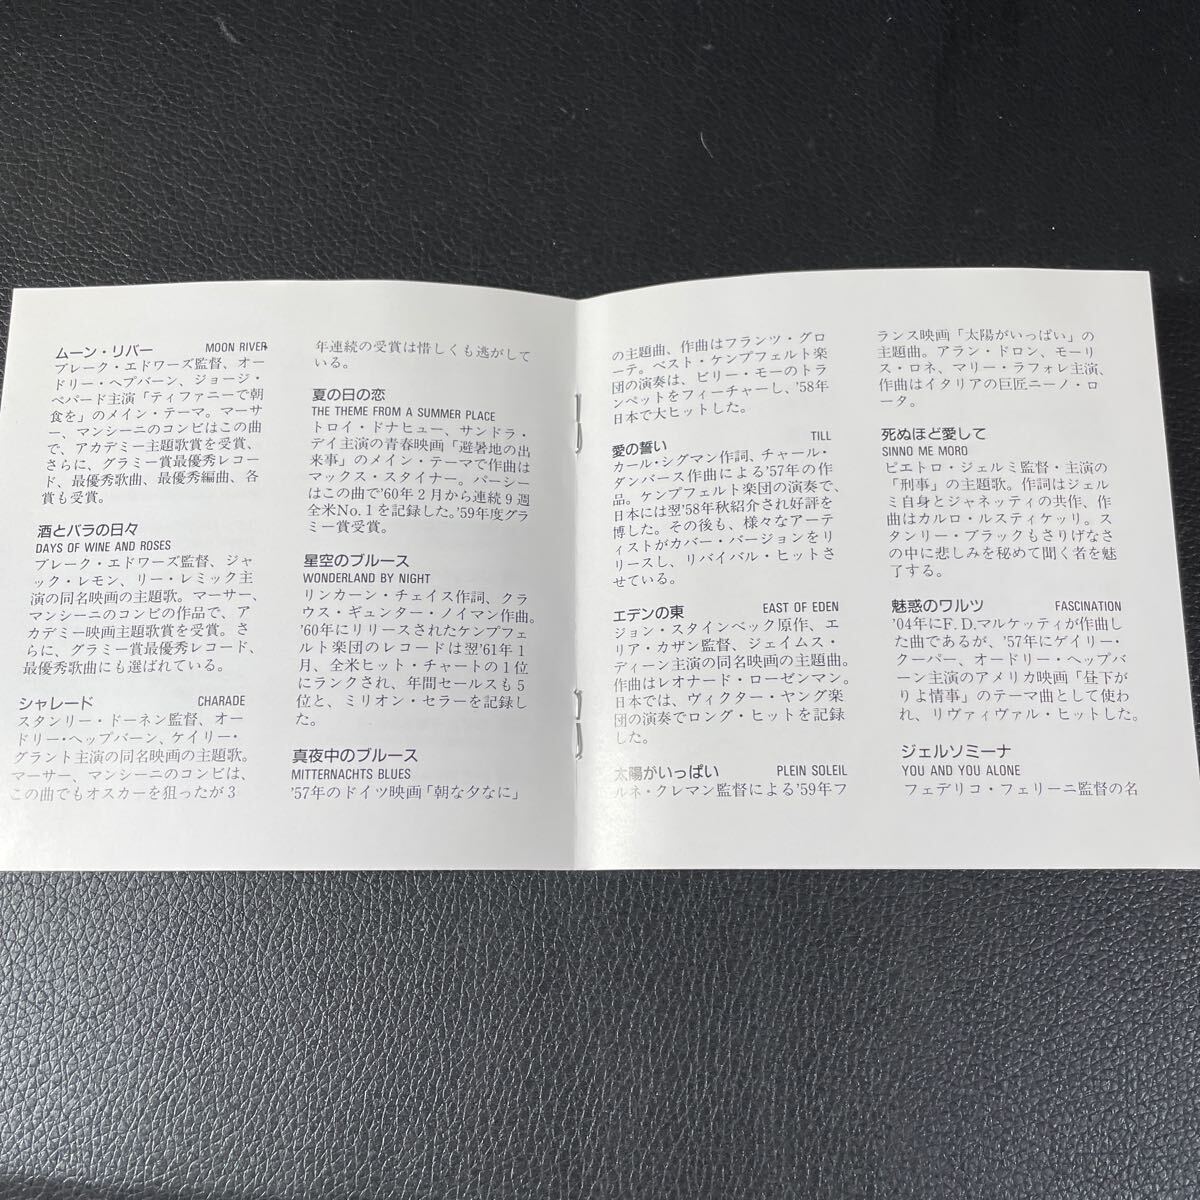 ムーン・リバー MOON RIVER
ブレーク・エドワーズ監督、オー
ドリー・ヘプバーン、ジョージ・
ペパード主演「ティファニーで朝
食を」のメイン・テーマ。マーサ
ー、マンシーニのコンビはこの曲
で、アカデミー主題歌賞を受賞、
さらに、グラミー賞最優秀レコー
ド、最優秀歌曲、最優秀編曲、各
賞も受賞。
酒とバラの日々
DAYS OF WINE AND ROSES
ブレーク・エドワーズ監督、ジャ
ック・レモン、リー・レミック主
演の同名映画の主題歌。マーサー、
マンシーニのコンビの作品で、ア
カデミー映画主題歌賞を受賞。さ
らに、グラミー賞最優秀レコード、
最優秀歌曲にも選ばれている。
シャレード CHARADE
スタンリー・ドーネン監督、オー
ドリー・ヘップバーン、ケイリー・
グラント主演の同名映画の主題歌。
マーサー、マンシーニのコンビは、
この曲でもオスカーを狙ったが3
年連続の受賞は惜しくも逃がして
いる。
夏の日の恋
THE THEME FROM A SUMMER PLACE
トロイ・ドナヒュー、サンドラ・
デイ主演の青春映画「避暑地の出
来事」のメイン・テーマで作曲は
マックス・スタイナー。パーシー
はこの曲で'60年2月から連続9週
全米No.1を記録した。'59年度グラ
ミー賞受賞。
星空のブルース
WONDERLAND BY NIGHT
リンカーン・チェイス作詞、クラ
ウス・ギュンター・ノイマン作曲。
'60年にリリースされたケンプフェ
ルト楽団のレコードは翌'61年1
月、全米ヒット・チャートの1位
にランクされ、年間セールスも5
位と、ミリオン・セラーを記録し
た。
真夜中のブルース
MITTERNACHTS BLUES
'57年のドイツ映画「朝な夕なに」
の主題曲、作曲はフランツ・グロ
ーテ。ベスト・ケンプフェルト楽
団の演奏は、ビリー・モーのトラ
ンペットをフィーチャーし、'58年
日本で大ヒットした。
愛の誓い TILL
カール・シグマン作詞、チャール・
ダンバース作曲による'57年の作
品。ケンプフェルト楽団の演奏で、
日本には翌'58年秋紹介され好評を
博した。その後も、様々なアーテ
ィストがカバー・バージョンをリ
リースし、リバイバル・ヒットさ
せている。
エデンの東 EAST OF EDEN
ジョン・スタインベック原作、エ
リア・カザン監督、ジェイムス・
ディーン主演の同名映画の主題曲。
作曲はレオナード・ローゼンマン。
日本では、ヴィクター・ヤング楽
団の演奏でロング・ヒットを記録
した。
太陽がいっぱい PLEIN SOLEIL
ルネ・クレマン監督による'59年フ
ランス映画「太陽がいっぱい」の
主題曲。アラン・ドロン、モーリ
ス・ロネ、マリー・ラフォレ主演、
作曲はイタリアの巨匠ニーノ・ロ
ータ。
死ぬほど愛して
SINNO ME MORO
ピエトロ・ジェルミ監督・主演の
「刑事」の主題歌。作詞はジェル
ミ自身とジャネッティの共作、作
曲はカルロ・ルスティケッリ。ス
タンリー・ブラックもさりげなさ
の中に悲しみを秘めて聞く者を魅
了する。
魅惑のワルツ FASCINATION
'04年にF.D.マルケッティが作曲し
た曲であるが、'57年にゲイリー・
クーパー、オードリー・ヘップバ
ーン主演のアメリカ映画「昼下が
りよ情事」のテーマ曲として使わ
れ、リヴァイヴァル・ヒットした。
ジェルソミーナ
YOU AND YOU ALONE
フェデリコ・フェリーニ監督の名